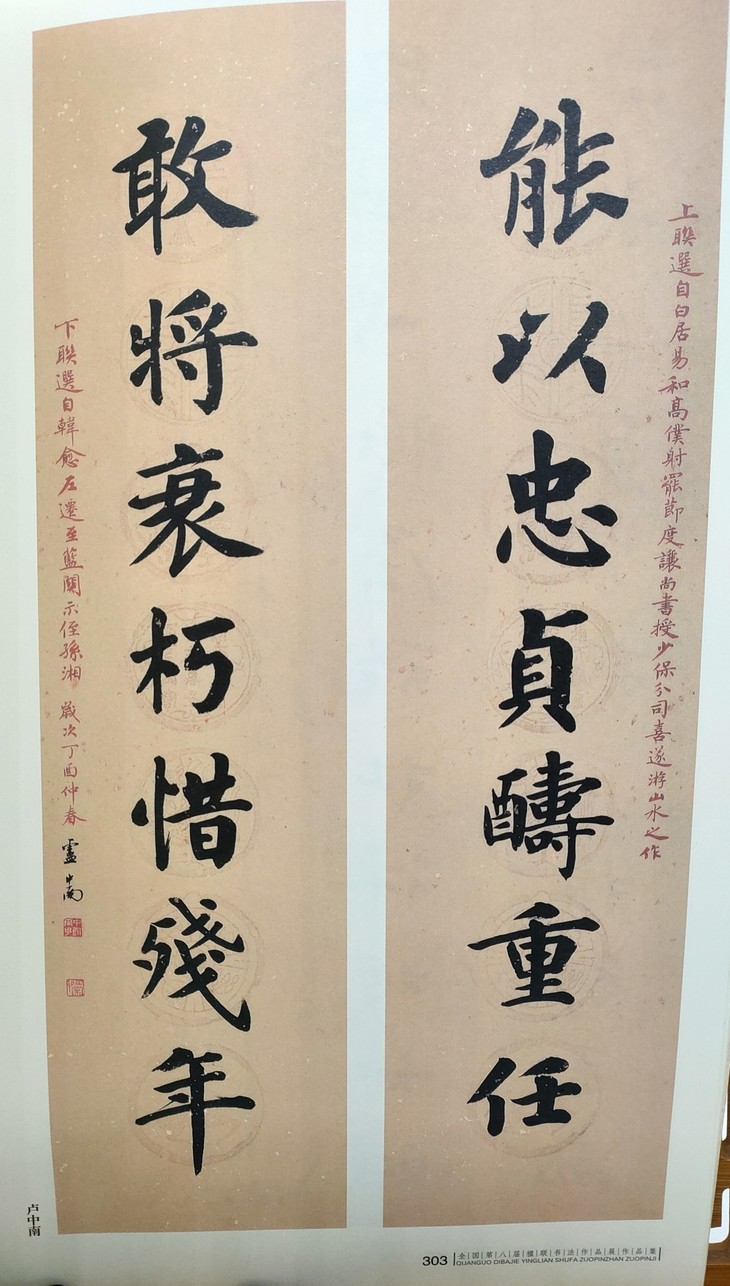 能以忠貞酬重任
上联選自白居易和高僕射罷節度讓尚書授少保分司喜遂游山水之作
敢將衰朽惜殘年
下联選自韓愈左遷至藍關示侄孫湘 歲次丁酉仲春
盧中南
卢中南
303
全国第八届楹联书法作品展作品集
QUANGUO DIBAJIE YINGLIAN SHUFA ZUOPINZHAN ZUOPINJI